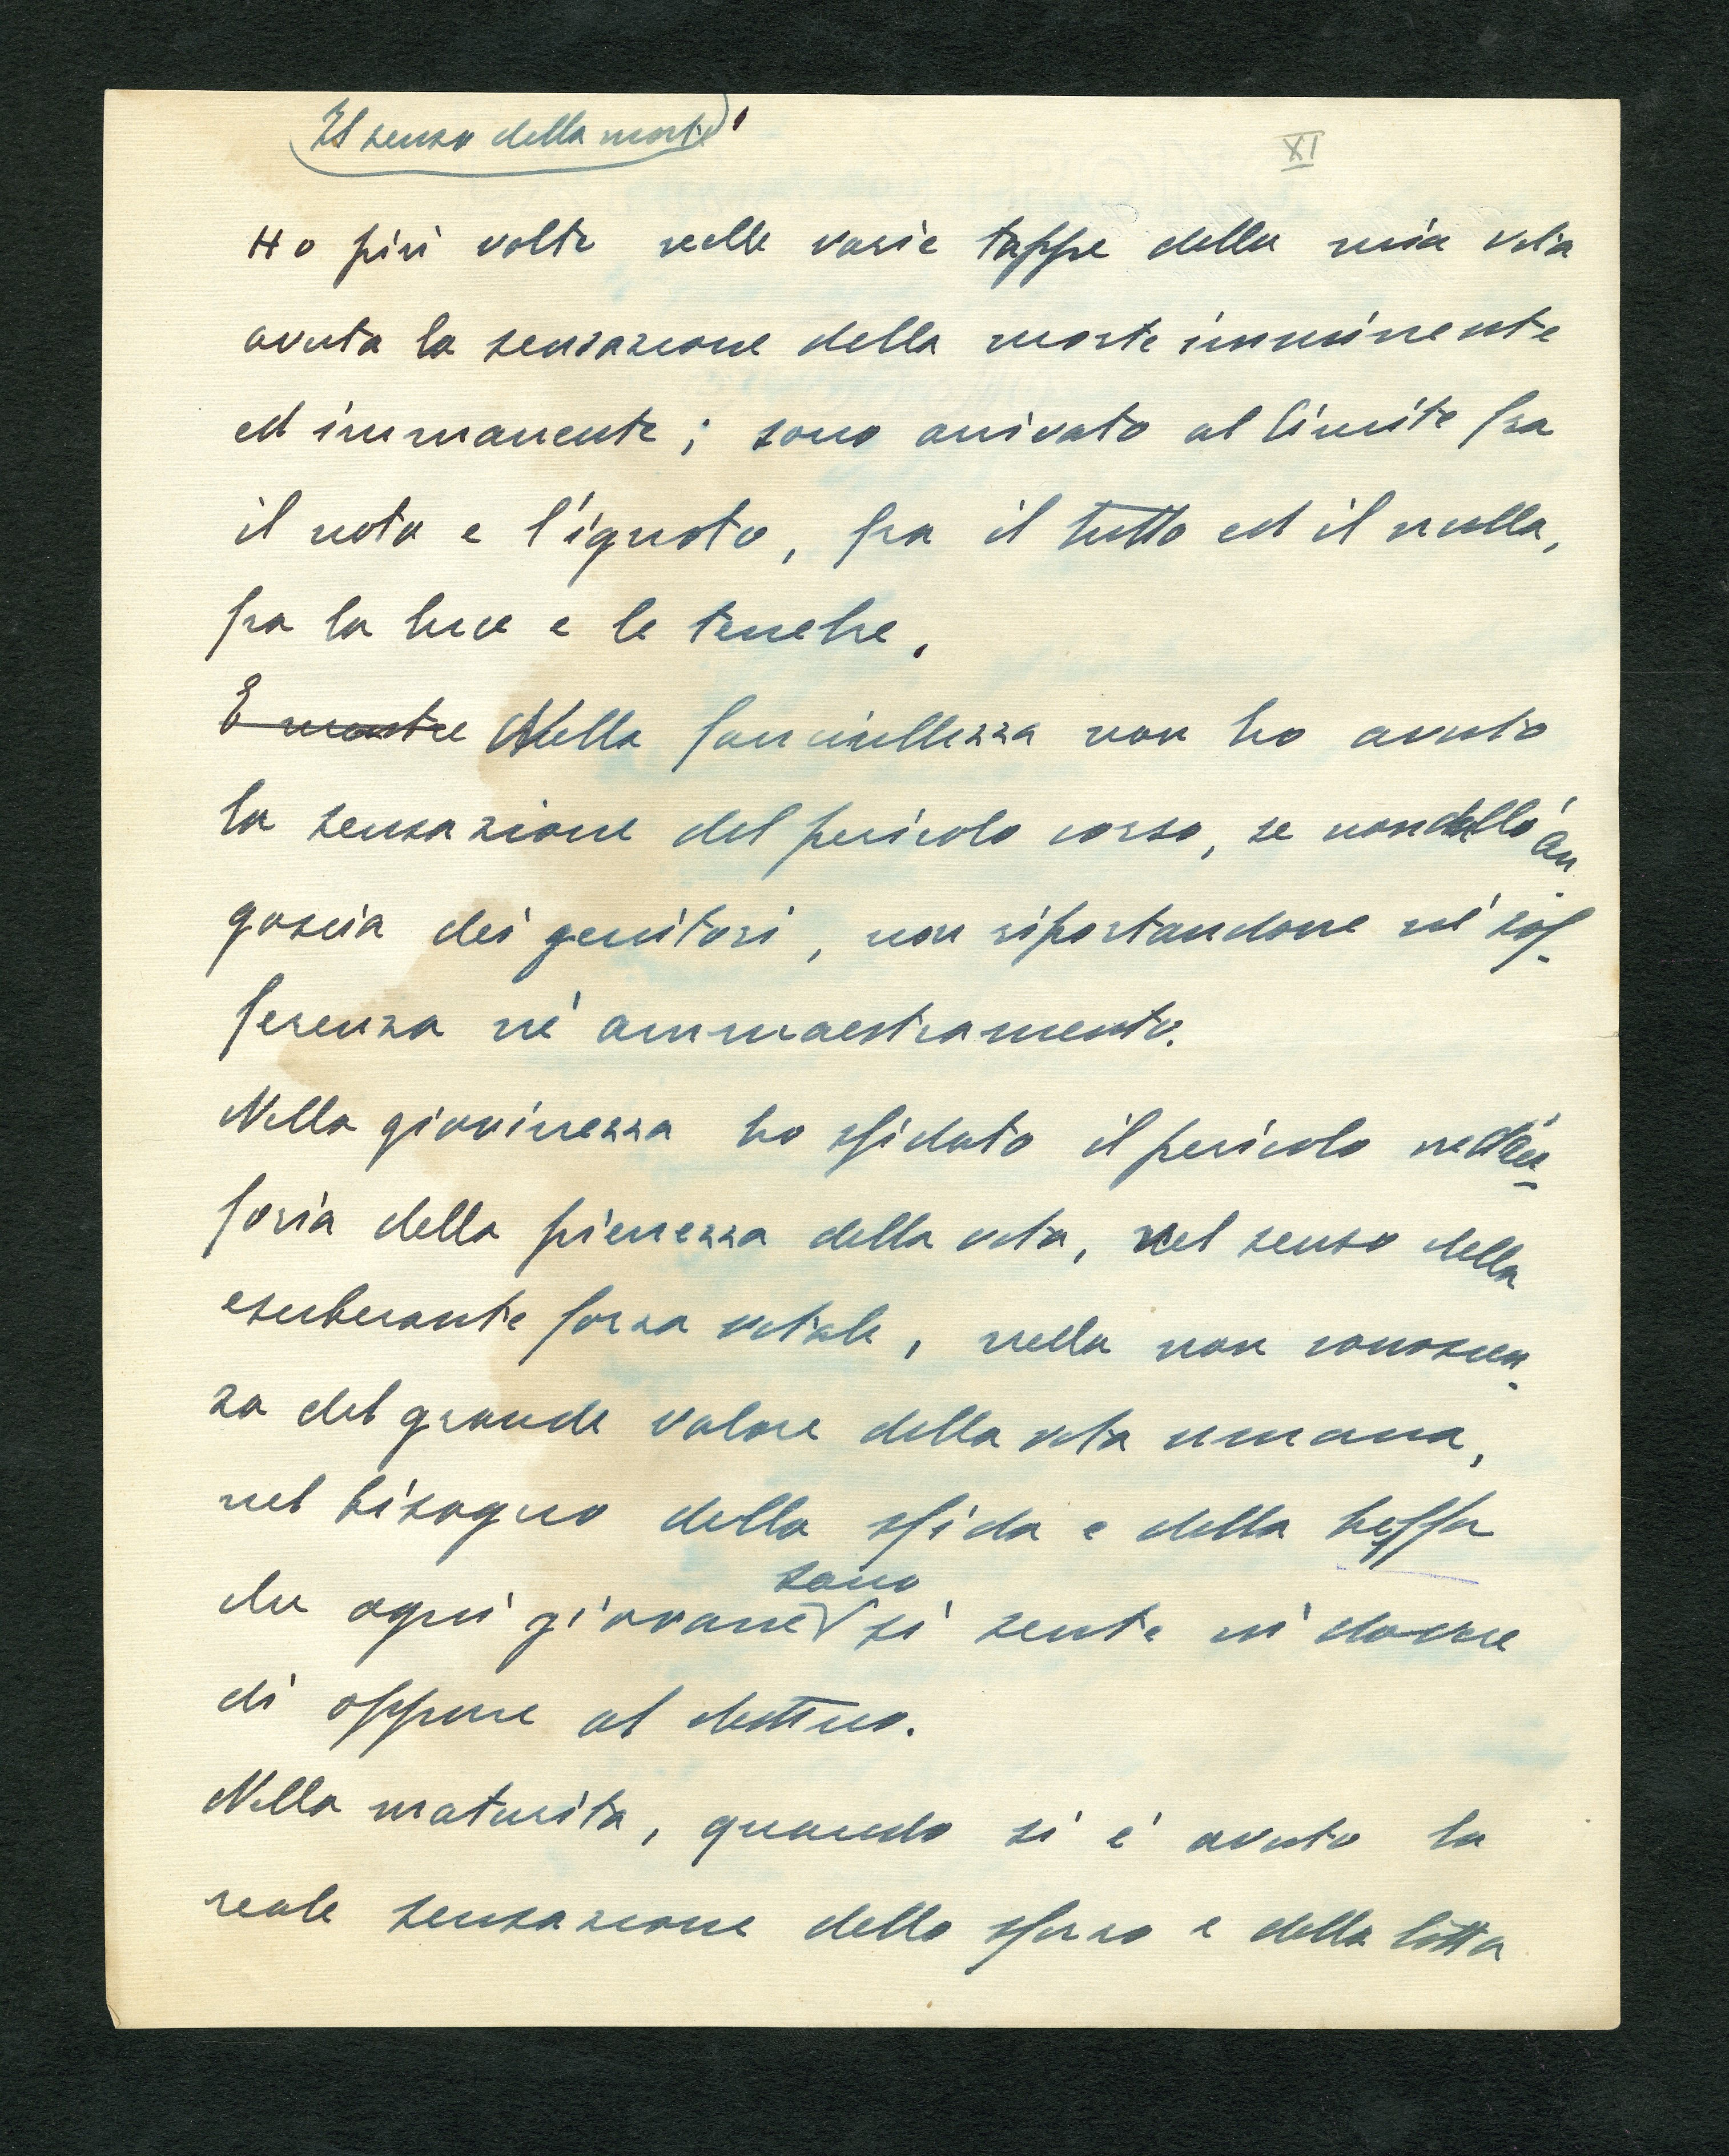 Il senso della morte
XI
Ho più volte nelle varie tappe della mia vita
avuta la sensazione della morte imminente
ed immanente; sono arrivato al limite fra
il noto e l'ignoto, fra il tutto ed il nulla,
fra la luce e le tenebre.
E mentre Nella fanciullezza non ho avuto
la sensazione del pericolo corso, se non dall'an
goscia dei genitori, non riportandone né sof-
ferenza né ammaestramento.
Nella giovinezza ho sfidato il pericolo nell'eu-
foria della pienezza della vita, nel senso della
esuberante forza vitale, nella non conoscen-
za del grande valore della vita umana,
nel bisogno della sfida e della beffa
che ogni giovane sano si sente in dovere
di opporre al destino.
Nella maturità, quando si è avuto la
reale sensazione dello sforzo e della lotta